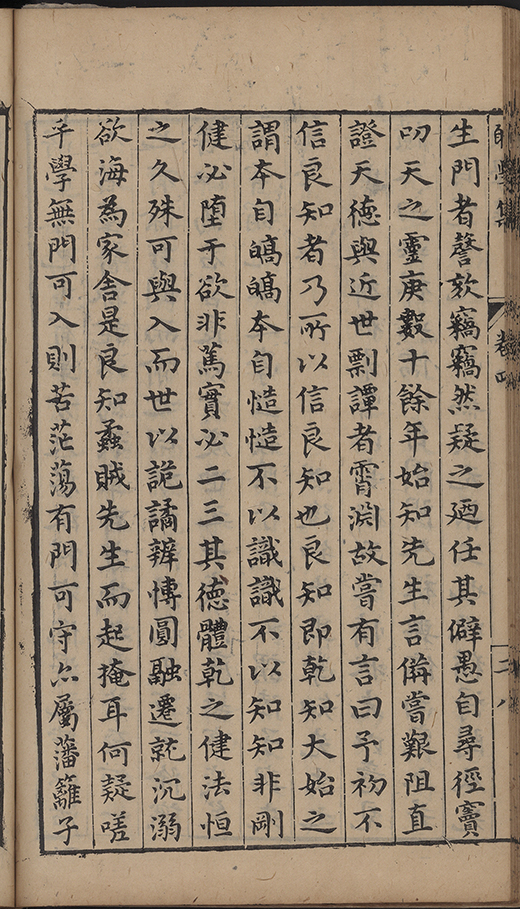 生門者謦欬竊竊然疑之廼任其僻愚自尋徑竇
叨天之靈庚數十餘年始知先生言備嘗艱阻直
證天德與近世剽譚者霄淵故嘗有言曰予初不
信良知者乃所以信良知也良知即乾知大始之
謂本自皜皜本自慥慥不以識識不以知知非剛
健必墮于欲非篤實必二三其德體乾之健法恒
之久殊可與入而世以詭譎辨博圓融遷就沉溺
欲海為家舍是良知蟊賊先生而起掩耳何疑嗟
乎學無門可入則苦茫蕩有門可守亦屬藩籬子
學集
卷
二八